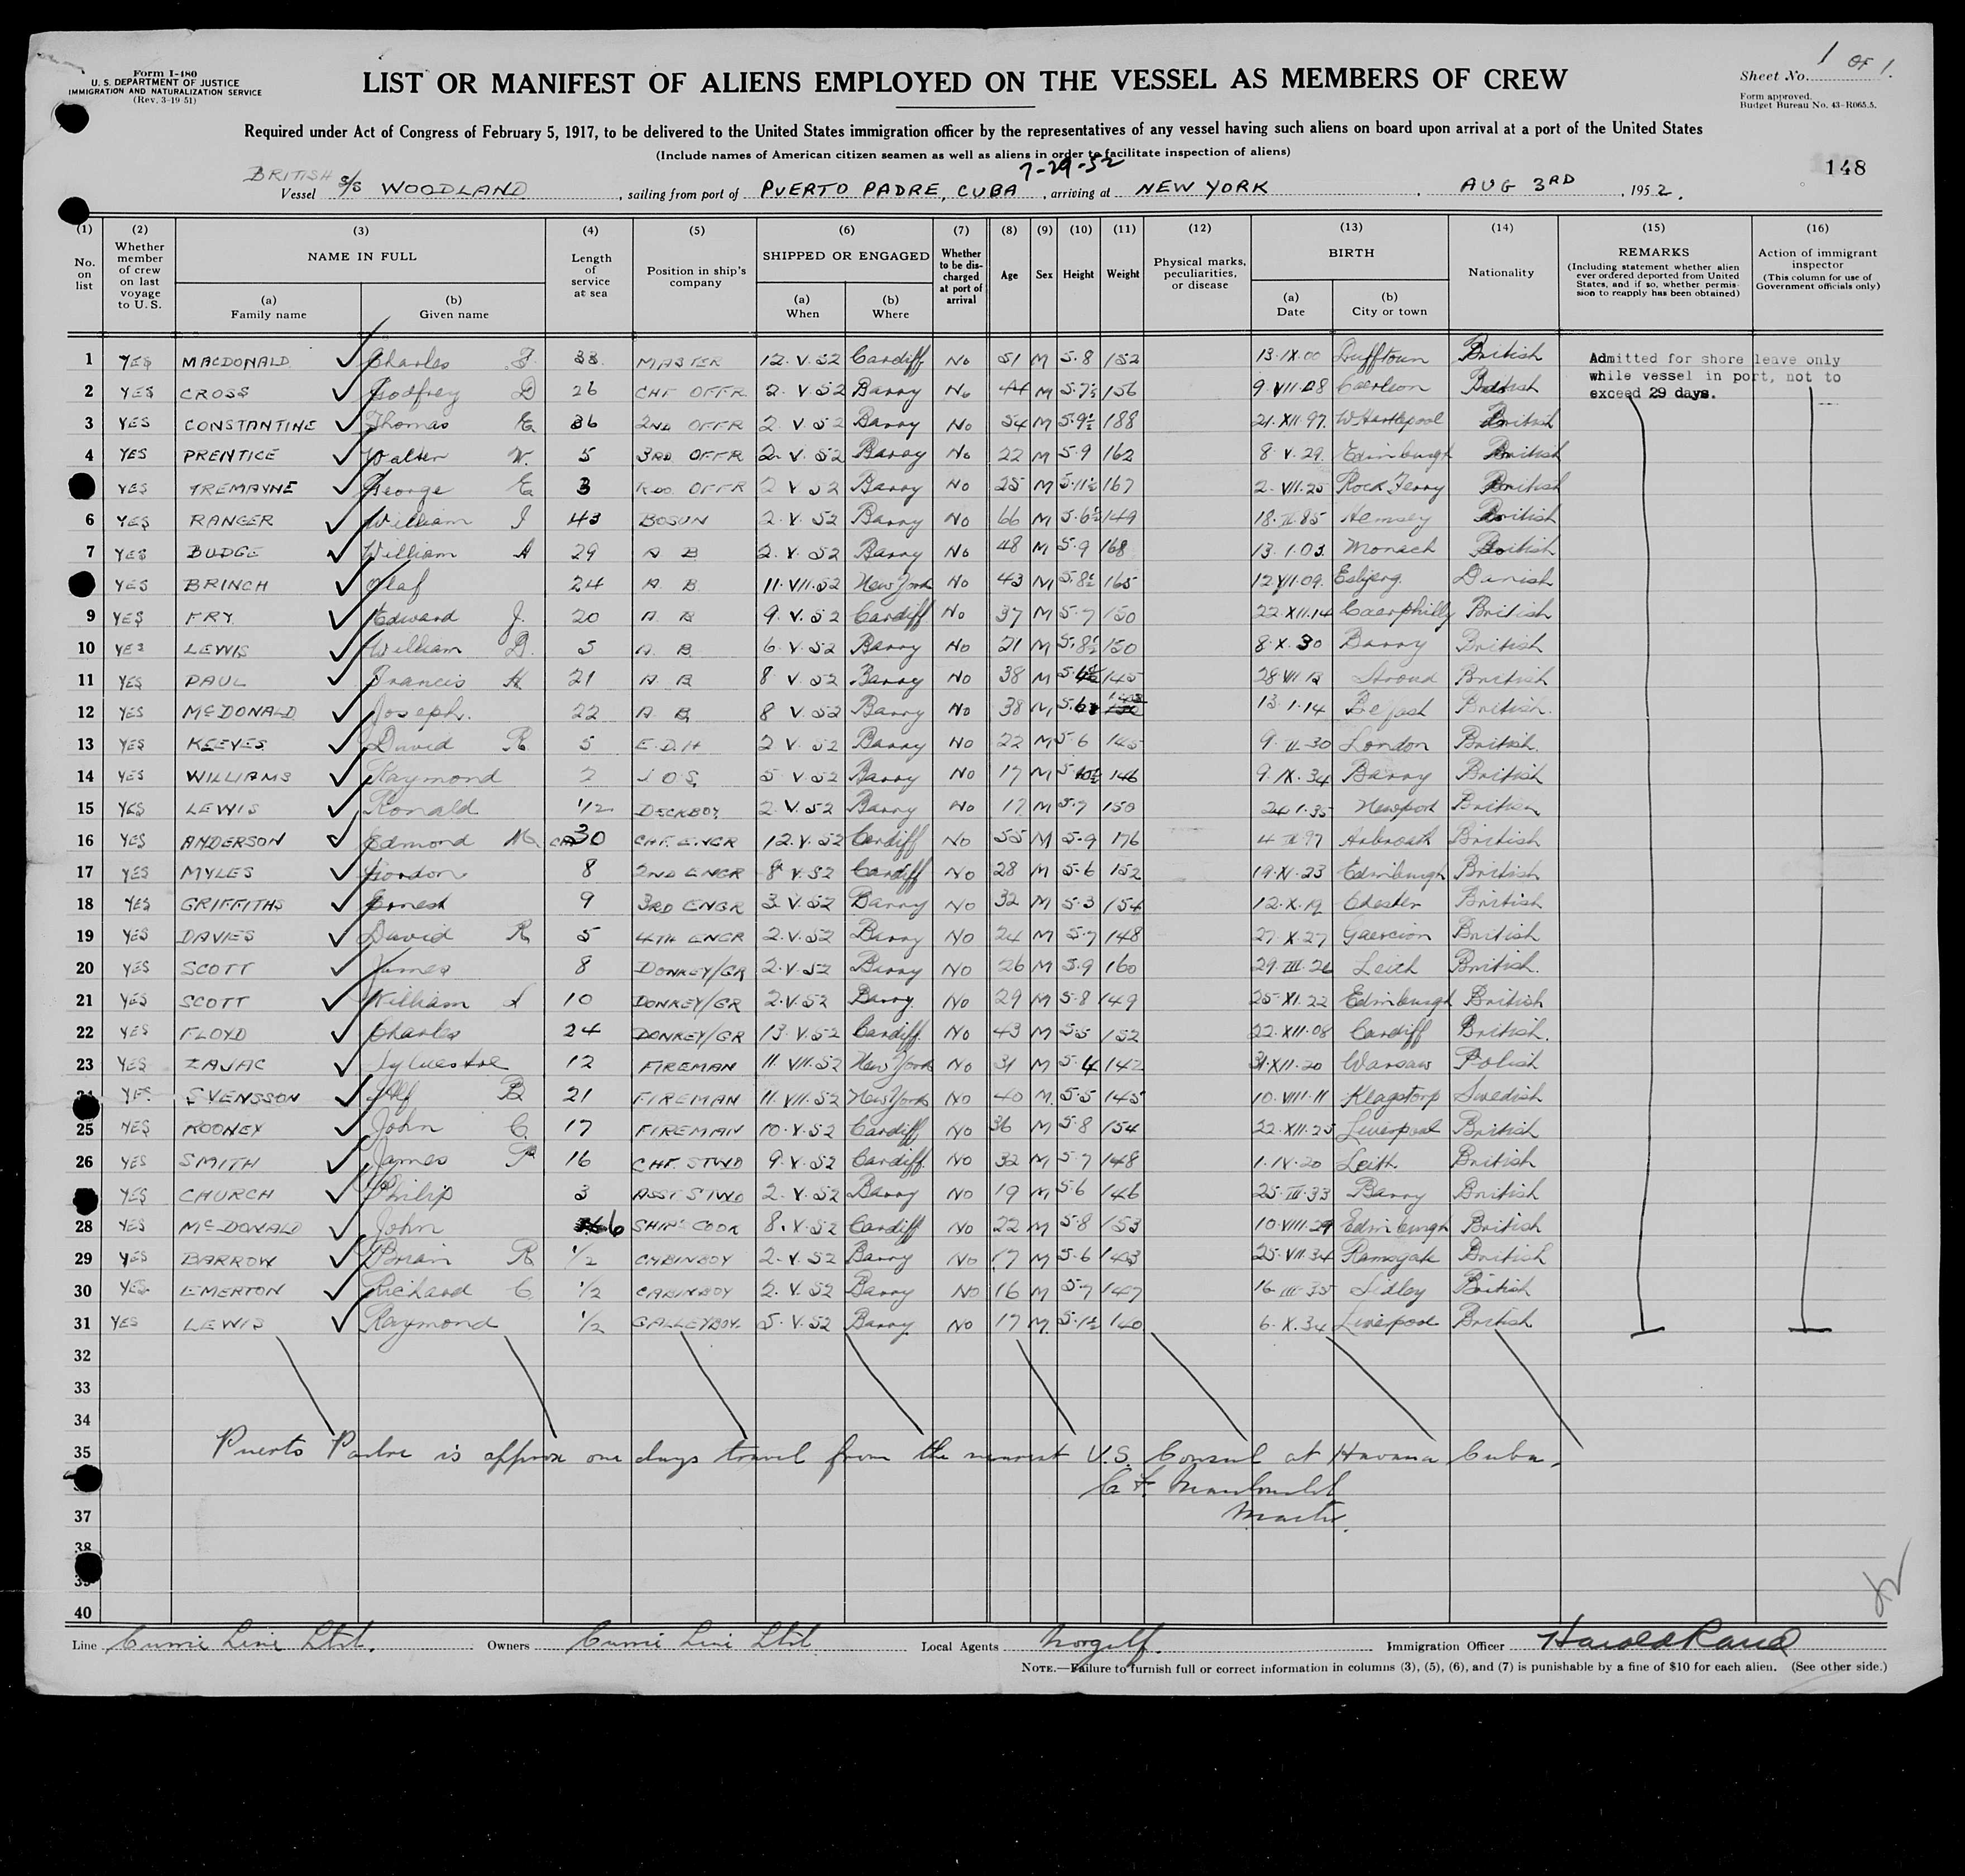 Form I-480
U. S. DEPARTMENT OF JUSTICE
IMMIGRATION AND NATURALIZATION SERVICE
(Rev. 3-19-51)
LIST OR MANIFEST OF ALIENS EMPLOYED ON THE VESSEL AS MEMBERS OF CREW
Sheet No. 1 OF 1.
Form approved.
Budget Bureau No. 43-R065.5.
Required under Act of Congress of February 5, 1917, to be delivered to the United States immigration officer by the representatives of any vessel having such aliens on board upon arrival at a port of the United States
(Include names of American citizen seamen as well as aliens in order to facilitate inspection of aliens)
148
7-29-52
BRITISH
Vessel S/S WOODLAND, sailing from port of PUERTO PADRE, CUBA, arriving at NEW YORK, AUG 3RD, 1952.
(1) No. on list (2) Whether member of crew on last voyage to U. S. (3) NAME IN FULL (a) Family name (b) Given name (4) Length of service at sea (5) Position in ship's company (6) SHIPPED OR ENGAGED (a) When (b) Where (7) Whether to be discharged at port of arrival (8) Age (9) Sex (10) Height (11) Weight (12) Physical marks, peculiarities, or disease (13) BIRTH (a) Date (b) City or town (14) Nationality (15) REMARKS (Including statement whether alien ever ordered deported from United States, and if so, whether permission to reapply has been obtained) (16) Action of immigrant inspector (This column for use of Government officials only)
1 YES MACDONALD Charles F. 33 MASTER 12.V.52 Cardiff No 51 M 5.8 152 13.IX.00 Dufftown British
Admitted for shore leave only
while vessel in port, not to
exceed 29 days.
2 YES CROSS Godfrey D 26 CHF OFFR 2.V.52 Barry No 44 M 5.7½ 156 9.VII.08 Caerleon British
3 YES CONSTANTINE Thomas E. 36 2ND OFFR 2.V.52 Barry No 54 M 5.9½ 188 21.XII.97 W Hartlepool British
4 YES PRENTICE Walter W. 5 3RD OFFR 2.V.52 Barry No 22 M 5.9 162 8.V.29 Edinburgh British
YES TREMAYNE George E. 3 RDO. OFFR 2.V.52 Barry No 25 M 5.11½ 167 2.VII.25 Rock Ferry British
6 YES RANGER William J 43 BOSUN 2.V.52 Barry No 66 M 5.6½ 149 18. 85 Hemsey British
7 YES BUDGE William A 29 A B 2.V.52 Barry No 48 M 5.9 168 13.1.03 British
YES BRINCH Olaf 24 A. B. 11.VII.52 New York No 43 M 5.8½ 165 12.VII.09 Esbjerg Danish
9 YES FRY Edward J. 20 A. B 9.V.52 Cardiff No 37 M 5.7 150 22.XII.14 Caerphilly British
10 YES LEWIS William D. 5 A. B. 6.V.52 Barry No 21 M 5.8½ 150 8.X.30 Barry British
11 YES PAUL Francis H 21 A. B 8 V.52 Barry No 38 M 145 28 VII Stroud British
12 YES McDONALD Joseph. 22 A B 8 V.52 Barry No 38 M 13.1.14 British.
13 YES KEEVES David R 5 E.D.H 2 V.52 Barry No 22 M 5.6 145 9. 30 London British.
14 YES WILLIAMS Raymond 2 J O S 5 V.52 Barry No 17 M 146 9.IX.34 Barry British
15 YES LEWIS Ronald 1/2 DECKBOY 2.V.52 Barry No 17 M 5.7 150 1.35 Newport British
16 YES ANDERSON Edmond 30 CHF. ENGR 12.V.52 Cardiff No 55 M 5.9 176 97 Arbroath British
17 YES MYLES Gordon 8 2ND ENGR 8 V.52 Cardiff No 28 M 5.6 152 19.XI.23 Edinburgh British
18 YES GRIFFITHS Ernest 9 3RD ENGR 3.V.52 Barry No 32 M 5.3 154 12.X.19 Chester British
19 YES DAVIES David R 5 4TH ENGR 2.V.52 Barry No 24 M 5.7 148 27.X.27 British
20 YES SCOTT James 8 DONKEY/GR 2.V.52 Barry NO 26 M 5.9 160 29.III.26 Leith British.
21 YES SCOTT William 10 DONKEY/GR 2.V.52 Barry No 29 M 5.8 149 25.XI.22 Edinburgh British
22 YES FLOYD Charles 24 DONKEY/GR 13.V.52 Cardiff No 43 M 5.5 152 22.XII.08 Cardiff British.
23 YES ZAJAC 12 FIREMAN 11.VII.52 New York No 31 M 5.4 142 31.XII.20 Warsaw Polish
YES SVENSSON Alf B 21 FIREMAN 11.VII.52 New York NO 40 M 5.5 145 10.VIII.11 Klagstorp Swedish
25 YES ROONEY John C. 17 FIREMAN 10.V.52 Cardiff No 36 M 5.8 154 22.XII.25 Liverpool British
26 YES SMITH James P. 16 CHF. STWD 9.V.52 Cardiff No 32 M 5.7 148 1.IV.20 Leith British
YES CHURCH Philip 3 ASST STWD 2.V.52 Barry No 19 M 5.6 146 25.III.33 Barry British
28 YES McDONALD John 6 SHIPS COOK 8.V.52 Cardiff No 22 M 5.8 153 10.VIII.29 Edinburgh British
29 YES BARROW Brian R 1/2 CABINBOY 2.V.52 Barry No 17 M 5.6 143 25.VII.34 Ramsgate British
30 YES EMERTON Richard C. 1/2 CABINBOY 2.V.52 Barry No 16 M 5.7 147 16.III.35 Sidley British
31 YES LEWIS Raymond 1/2 GALLEYBOY. 5.V.52 Barry. No 17 M 5.1½ 140 6.X.34 Liverpool British
32
33
34
35 Puerto Padre is approx one days travel from the nearest U.S. Consul at Havana Cuba.
C. F. MacDonald
37 Master.
38
39
40
Line Currie Line Ltd. Owners Currie Line Ltd Local Agents Norgulf. Immigration Officer Harold Rand
NOTE.—Failure to furnish full or correct information in columns (3), (5), (6), and (7) is punishable by a fine of $10 for each alien. (See other side.)